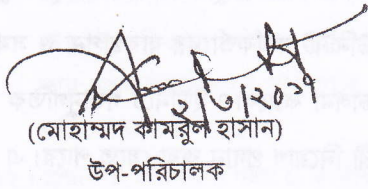 ২/৩/২০১৭
(মোহাম্মদ কামরুল হাসান)
উপ-পরিচালক